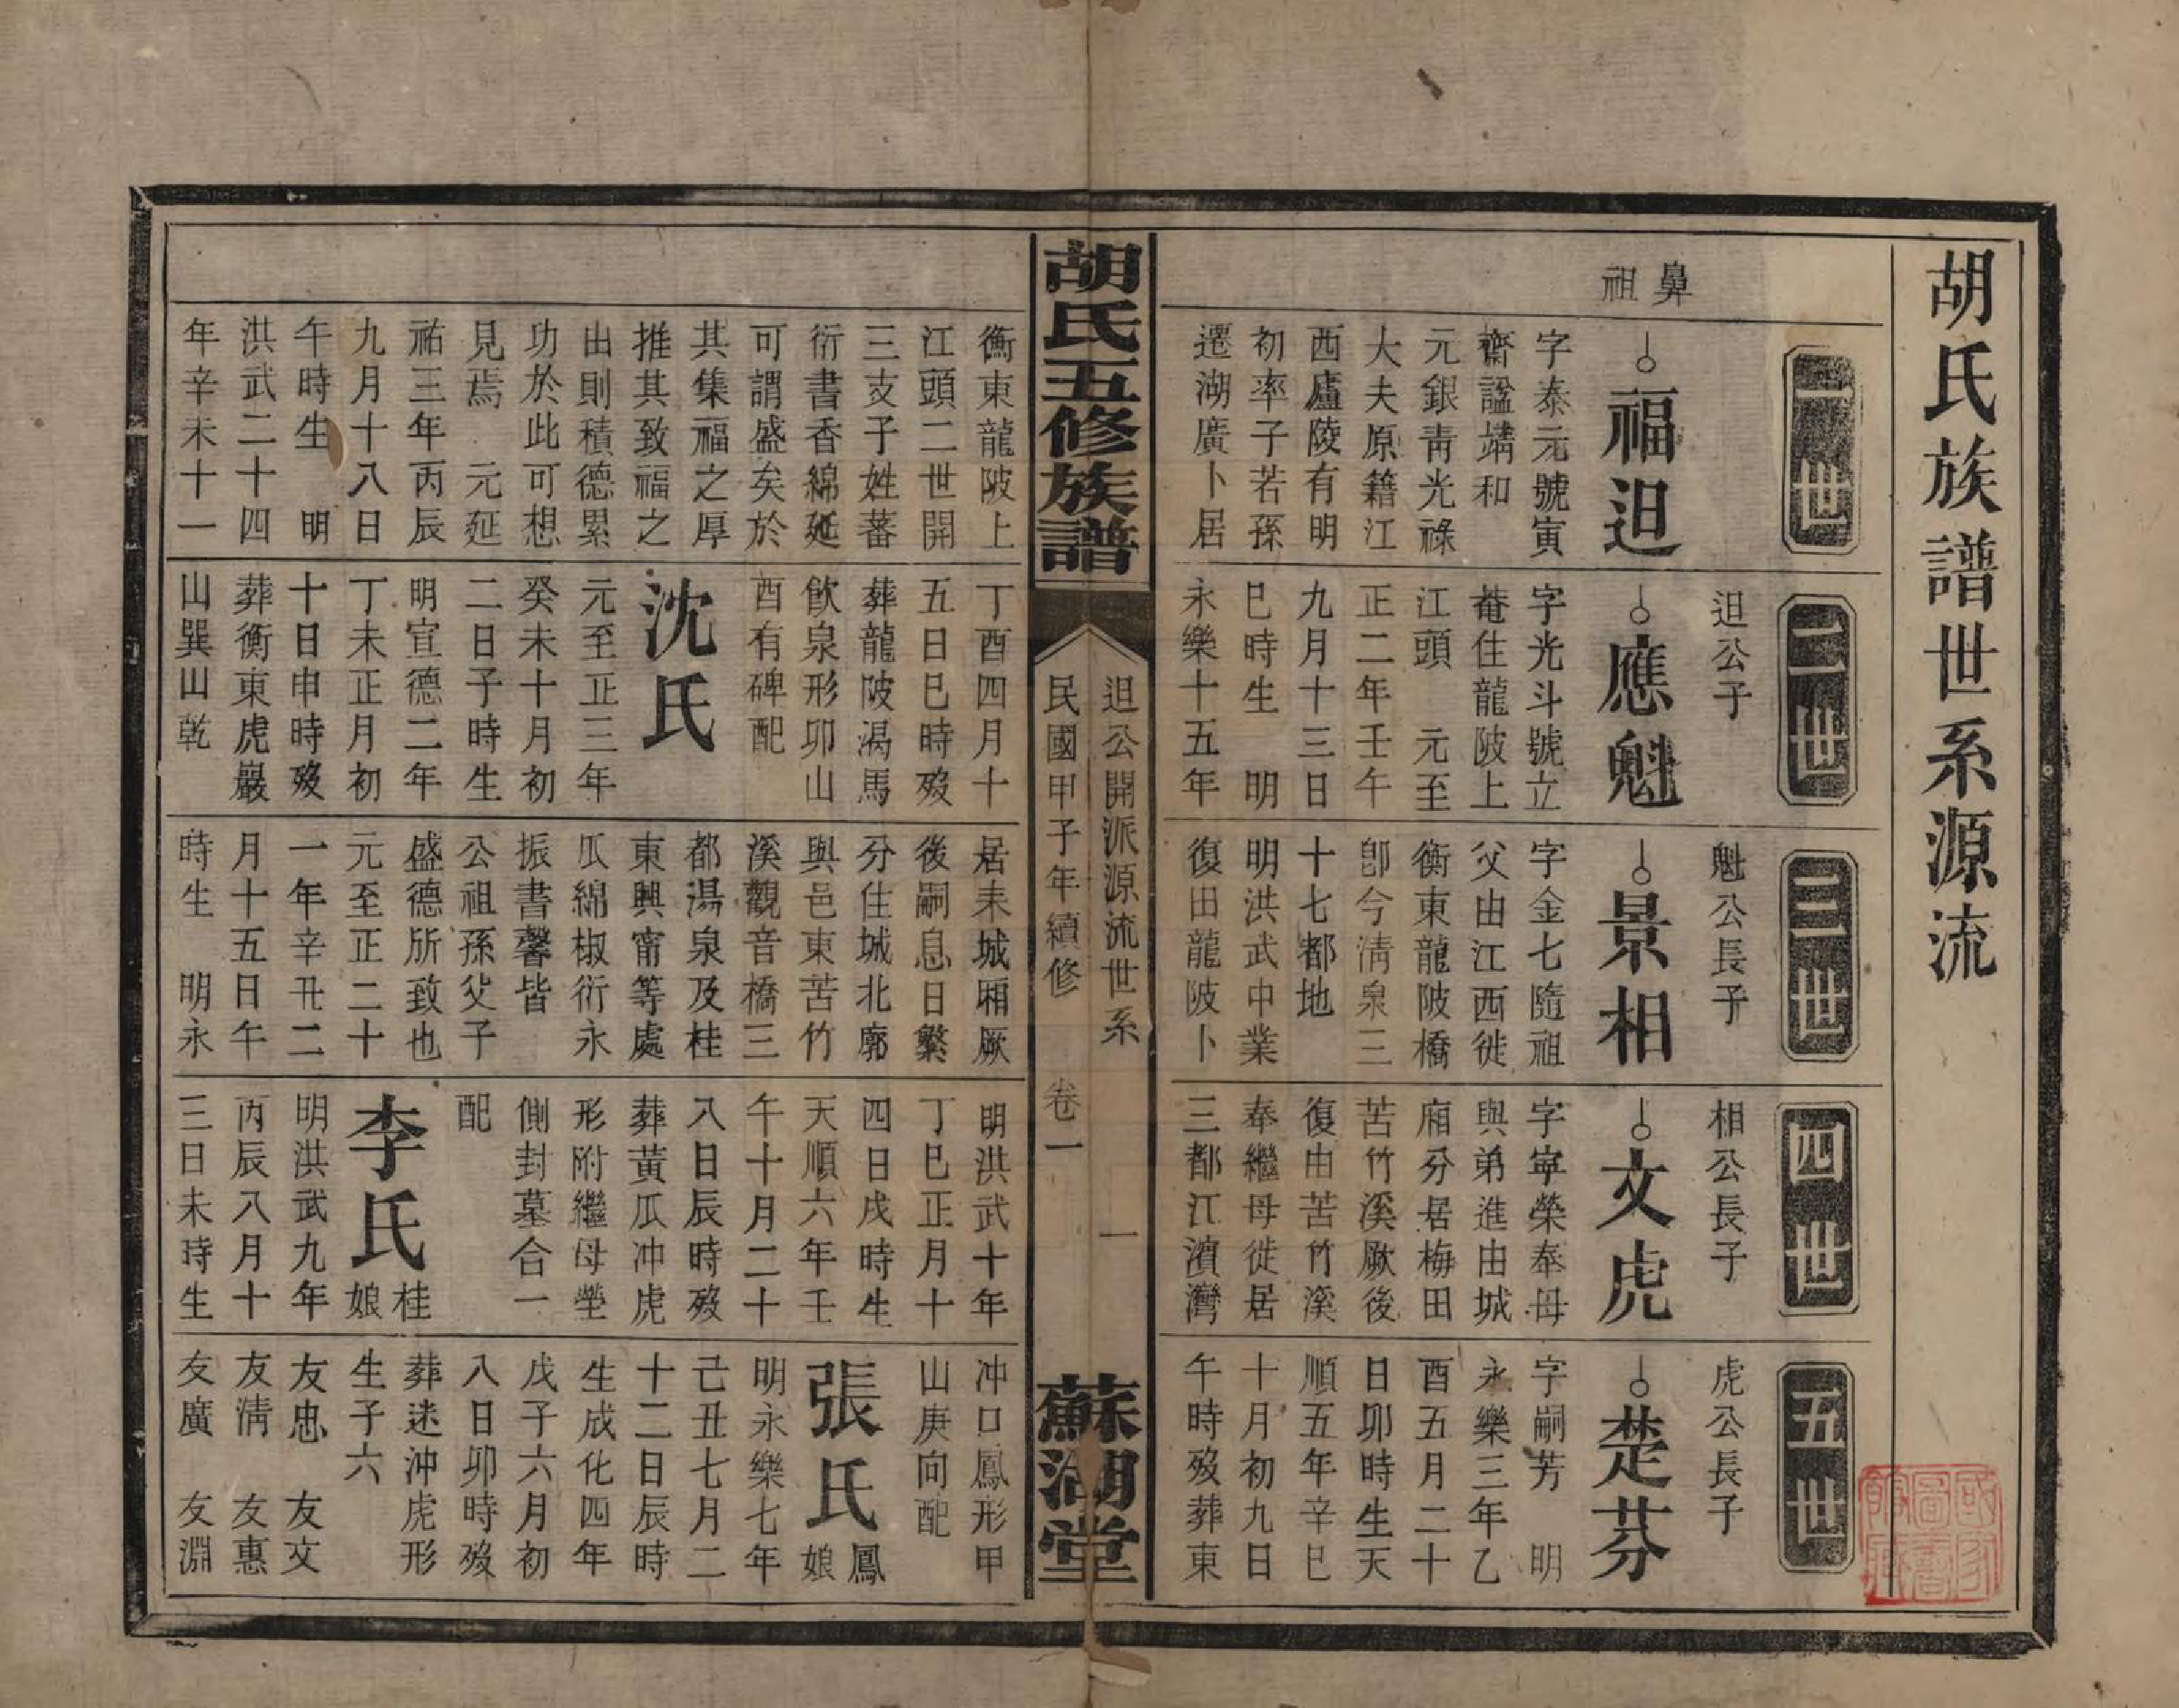 胡氏族譜世系源流
一世
鼻祖
福迫
字泰元號寅
齋諡靖和
元銀靑光祿
大夫原籍江
西廬陵有明
初率子若孫
遷湖廣卜居
二世
迫公子
應魁
字光斗號立
菴住龍陂上
江頭　元至
正二年壬午
九月十三日
巳時生　明
永樂十五年
三世
魁公長子
景相
字金七隨祖
父由江西徙
衡東龍陂橋
卽今清泉三
十七都地
明洪武中業
復田龍陂卜
四世
相公長子
文虎
字寧榮奉母
與弟進由城
廂分居梅田
苦竹溪厥後
復由苦竹溪
奉繼母徙居
三都江濱灣
五世
虎公長子
楚芬
字嗣芳　明
永樂三年乙
酉五月二十
日卯時生天
順五年辛巳
十月初九日
午時歿葬東
胡氏五修族譜
迫公開派源流世系
民國甲子年續修
卷一
一
蘇湖堂
衡東龍陂上
江頭二世開
三支子姓蕃
衍書香綿延
可謂盛矣於
其集福之厚
推其致福之
出則積德累
功於此可想
見焉　元延
祐三年丙辰
九月十八日
午時生　明
洪武二十四
年辛未十一
丁酉四月十
五日巳時歿
葬龍陂渴馬
飲泉形卯山
酉有碑配
沈氏
元至正三年
癸未十月初
二日子時生
明宣德二年
丁未正月初
十日申時歿
葬衡東虎巖
山巽山乾
居耒城廂厥
後嗣息日繁
分住城北廓
與邑東苦竹
溪觀音橋三
都湯泉及桂
東興甯等處
瓜綿椒衍永
振書馨皆
公祖孫父子
盛德所致也
元至正二十
一年辛丑二
月十五日午
時生　明永
明洪武十年
丁巳正月十
四日戌時生
天順六年壬
午十月二十
八日辰時歿
葬黃瓜冲虎
形附繼母塋
側封墓合一
配
李氏桂娘
明洪武九年
丙辰八月十
三日未時生
冲口鳳形甲
山庚向配
張氏鳳娘
明永樂七年
己丑七月二
十二日辰時
生成化四年
戊子六月初
八日卯時歿
葬迷冲虎形
生子六
友忠　友文
友清　友惠
友廣　友淵